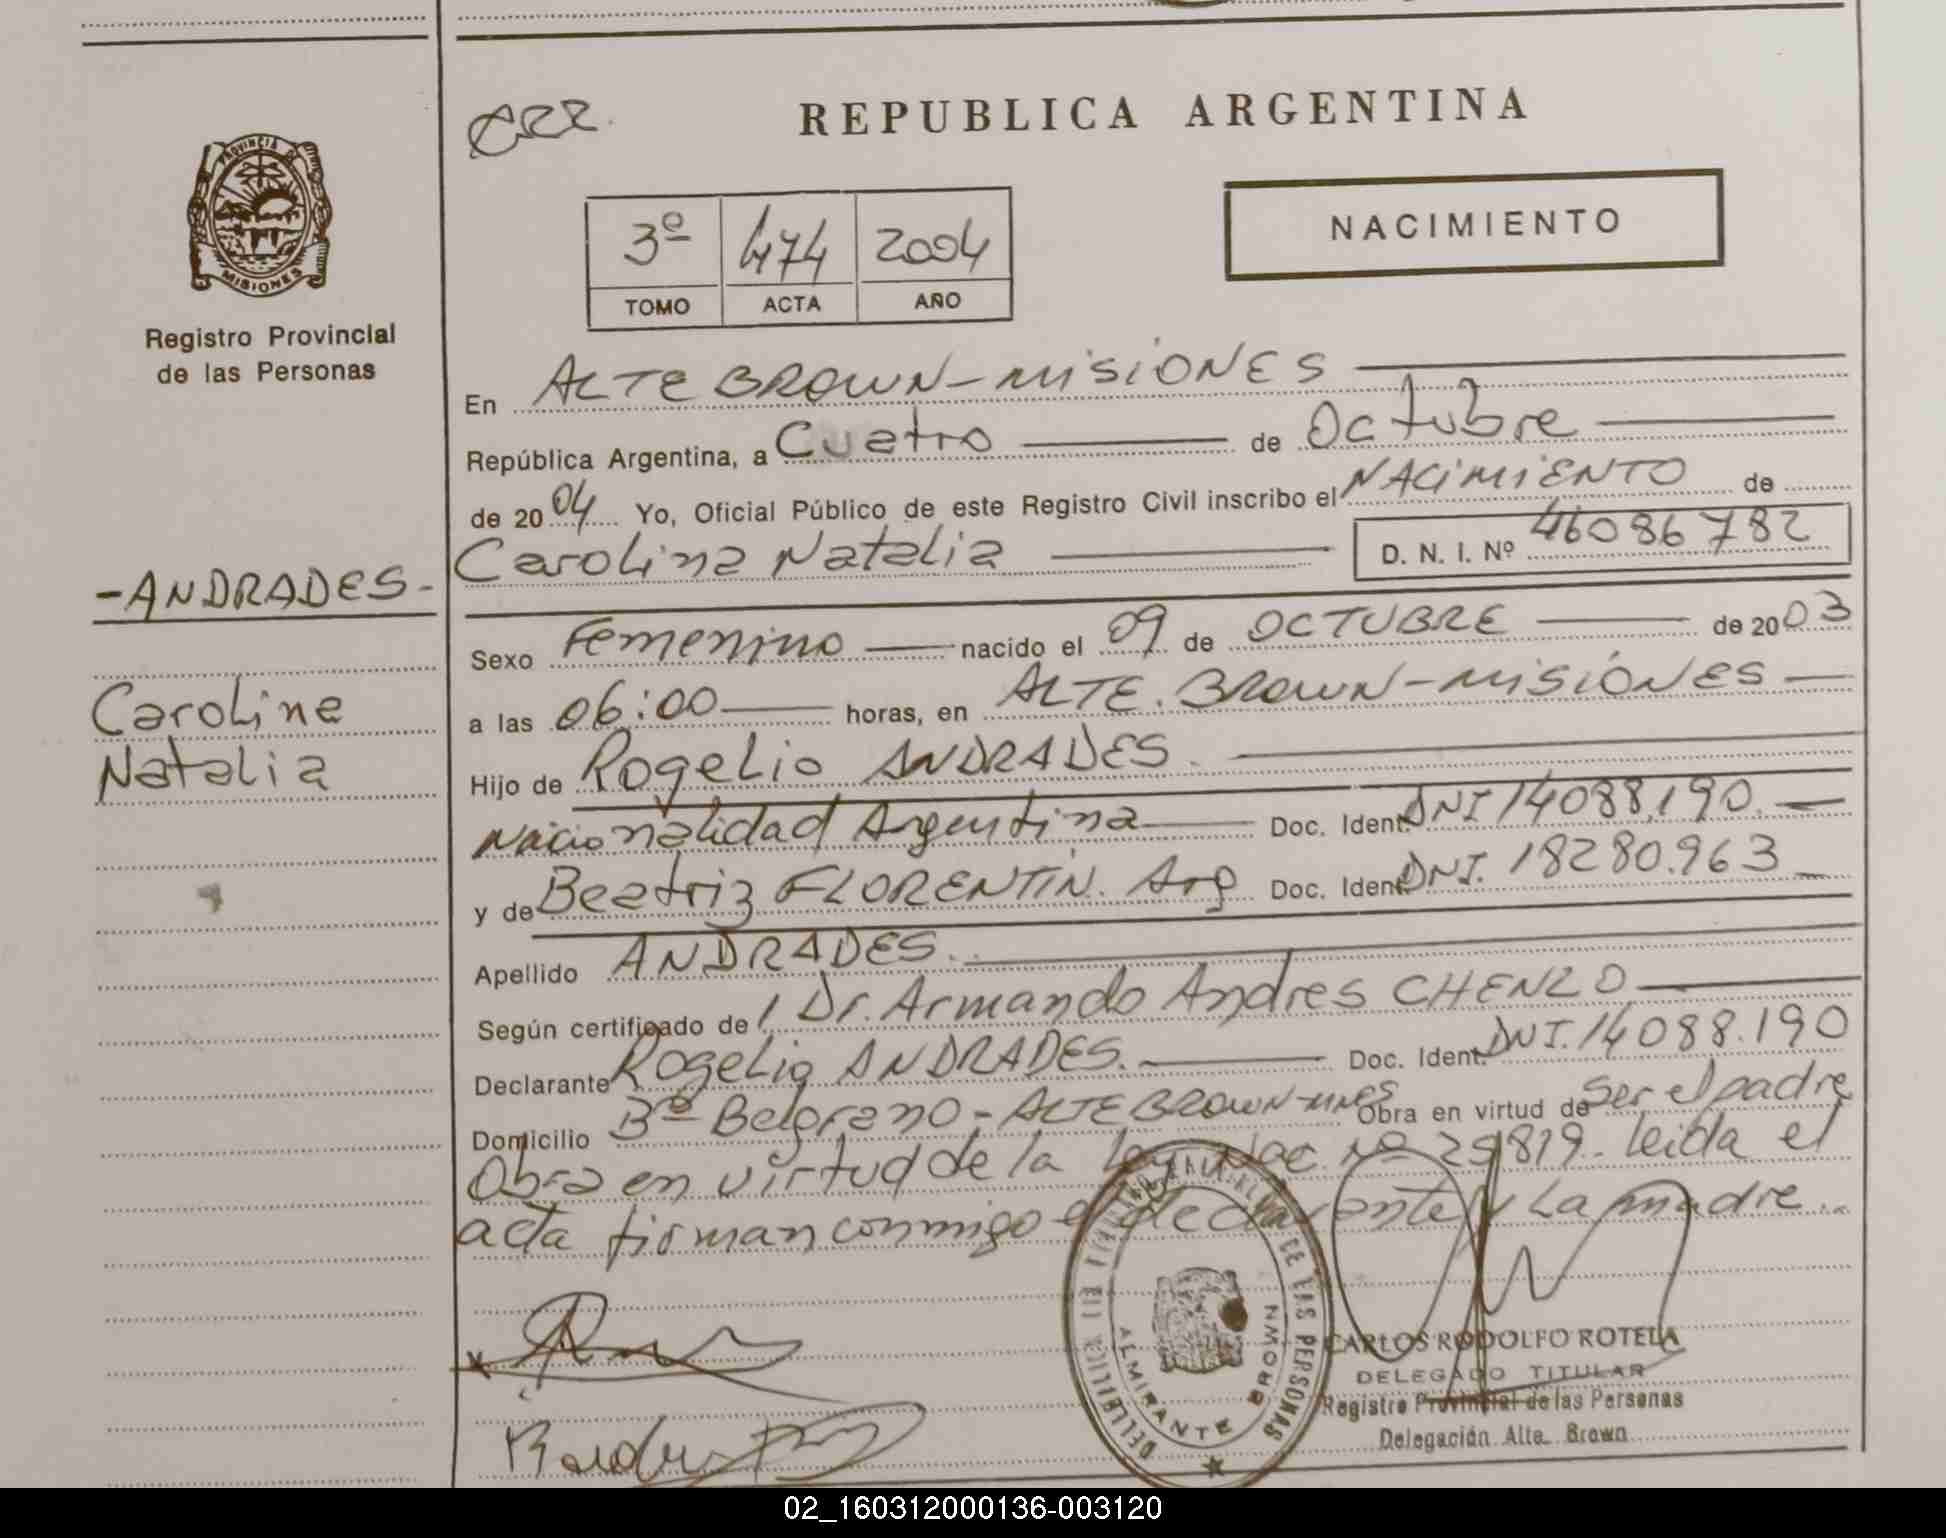 PROVINCIA DE
MISIONES
Registro Provincial
de las Personas
-ANDRADES-
Caroline
Natalia
REPUBLICA ARGENTINA
3º 474 2004
TOMO ACTA AÑO
NACIMIENTO
En ALTE BROWN-MISIONES
República Argentina, a Cuatro de Octubre
de 2004 Yo, Oficial Público de este Registro Civil inscribo el NACIMIENTO de
Carolina Natalia D. N. I. Nº 46086782
Sexo Femenino nacido el 09 de OCTUBRE de 2003
a las 06:00 horas, en ALTE. BROWN-MISIONES
Hijo de Rogelio ANDRADES.
Nacionalidad Argentina Doc. Ident. DNI 14088.190.
y de Beatriz FLORENTIN. Arg Doc. Ident. DNI. 18280.963
Apellido ANDRADES.
Según certificado de Dr. Armando Andres CHENZO
Declarante Rogelio ANDRADES. Doc. Ident. DNI. 14088.190
Domicilio Bº Belgrano - ALTE BROWN-MNES Obra en virtud de ser el padre
Obra en virtud de la Ley Nac. Nº 25819. leida el
acta firman conmigo el declarante y La madre..
DE LAS PERSONAS
ALMIRANTE BROWN
CARLOS RODOLFO ROTELA
DELEGADO TITULAR
Registro Provincial de las Personas
Delegación Alte. Brown
02_160312000136-003120